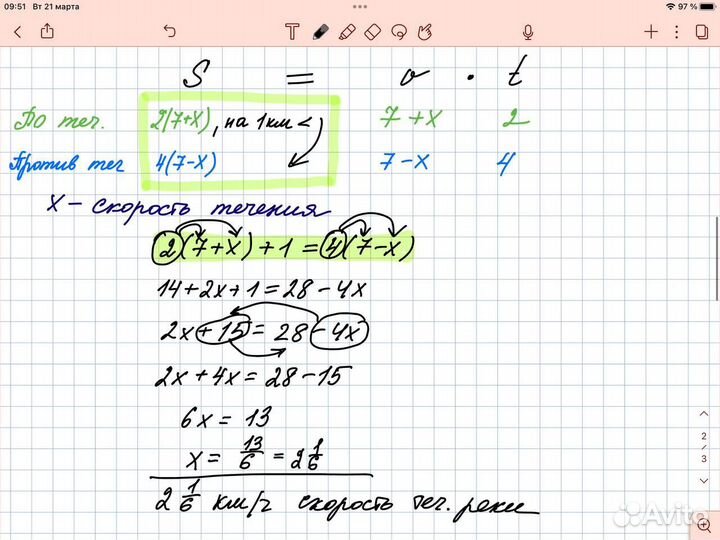 09:51 Вт 21 марта 97 %
S = v · t
По теч. 2(7+x), на 1км < 7+x 2
Против теч 4(7-x) 7-x 4
x - скорость течения
2(7+x)+1=4(7-x)
14+2x+1=28-4x
2x+15=28-4x
2x+4x=28-15
6x=13
x= 13/6 = 2 1/6
2 1/6 км/г скорость теч. реки
2
3
Avito